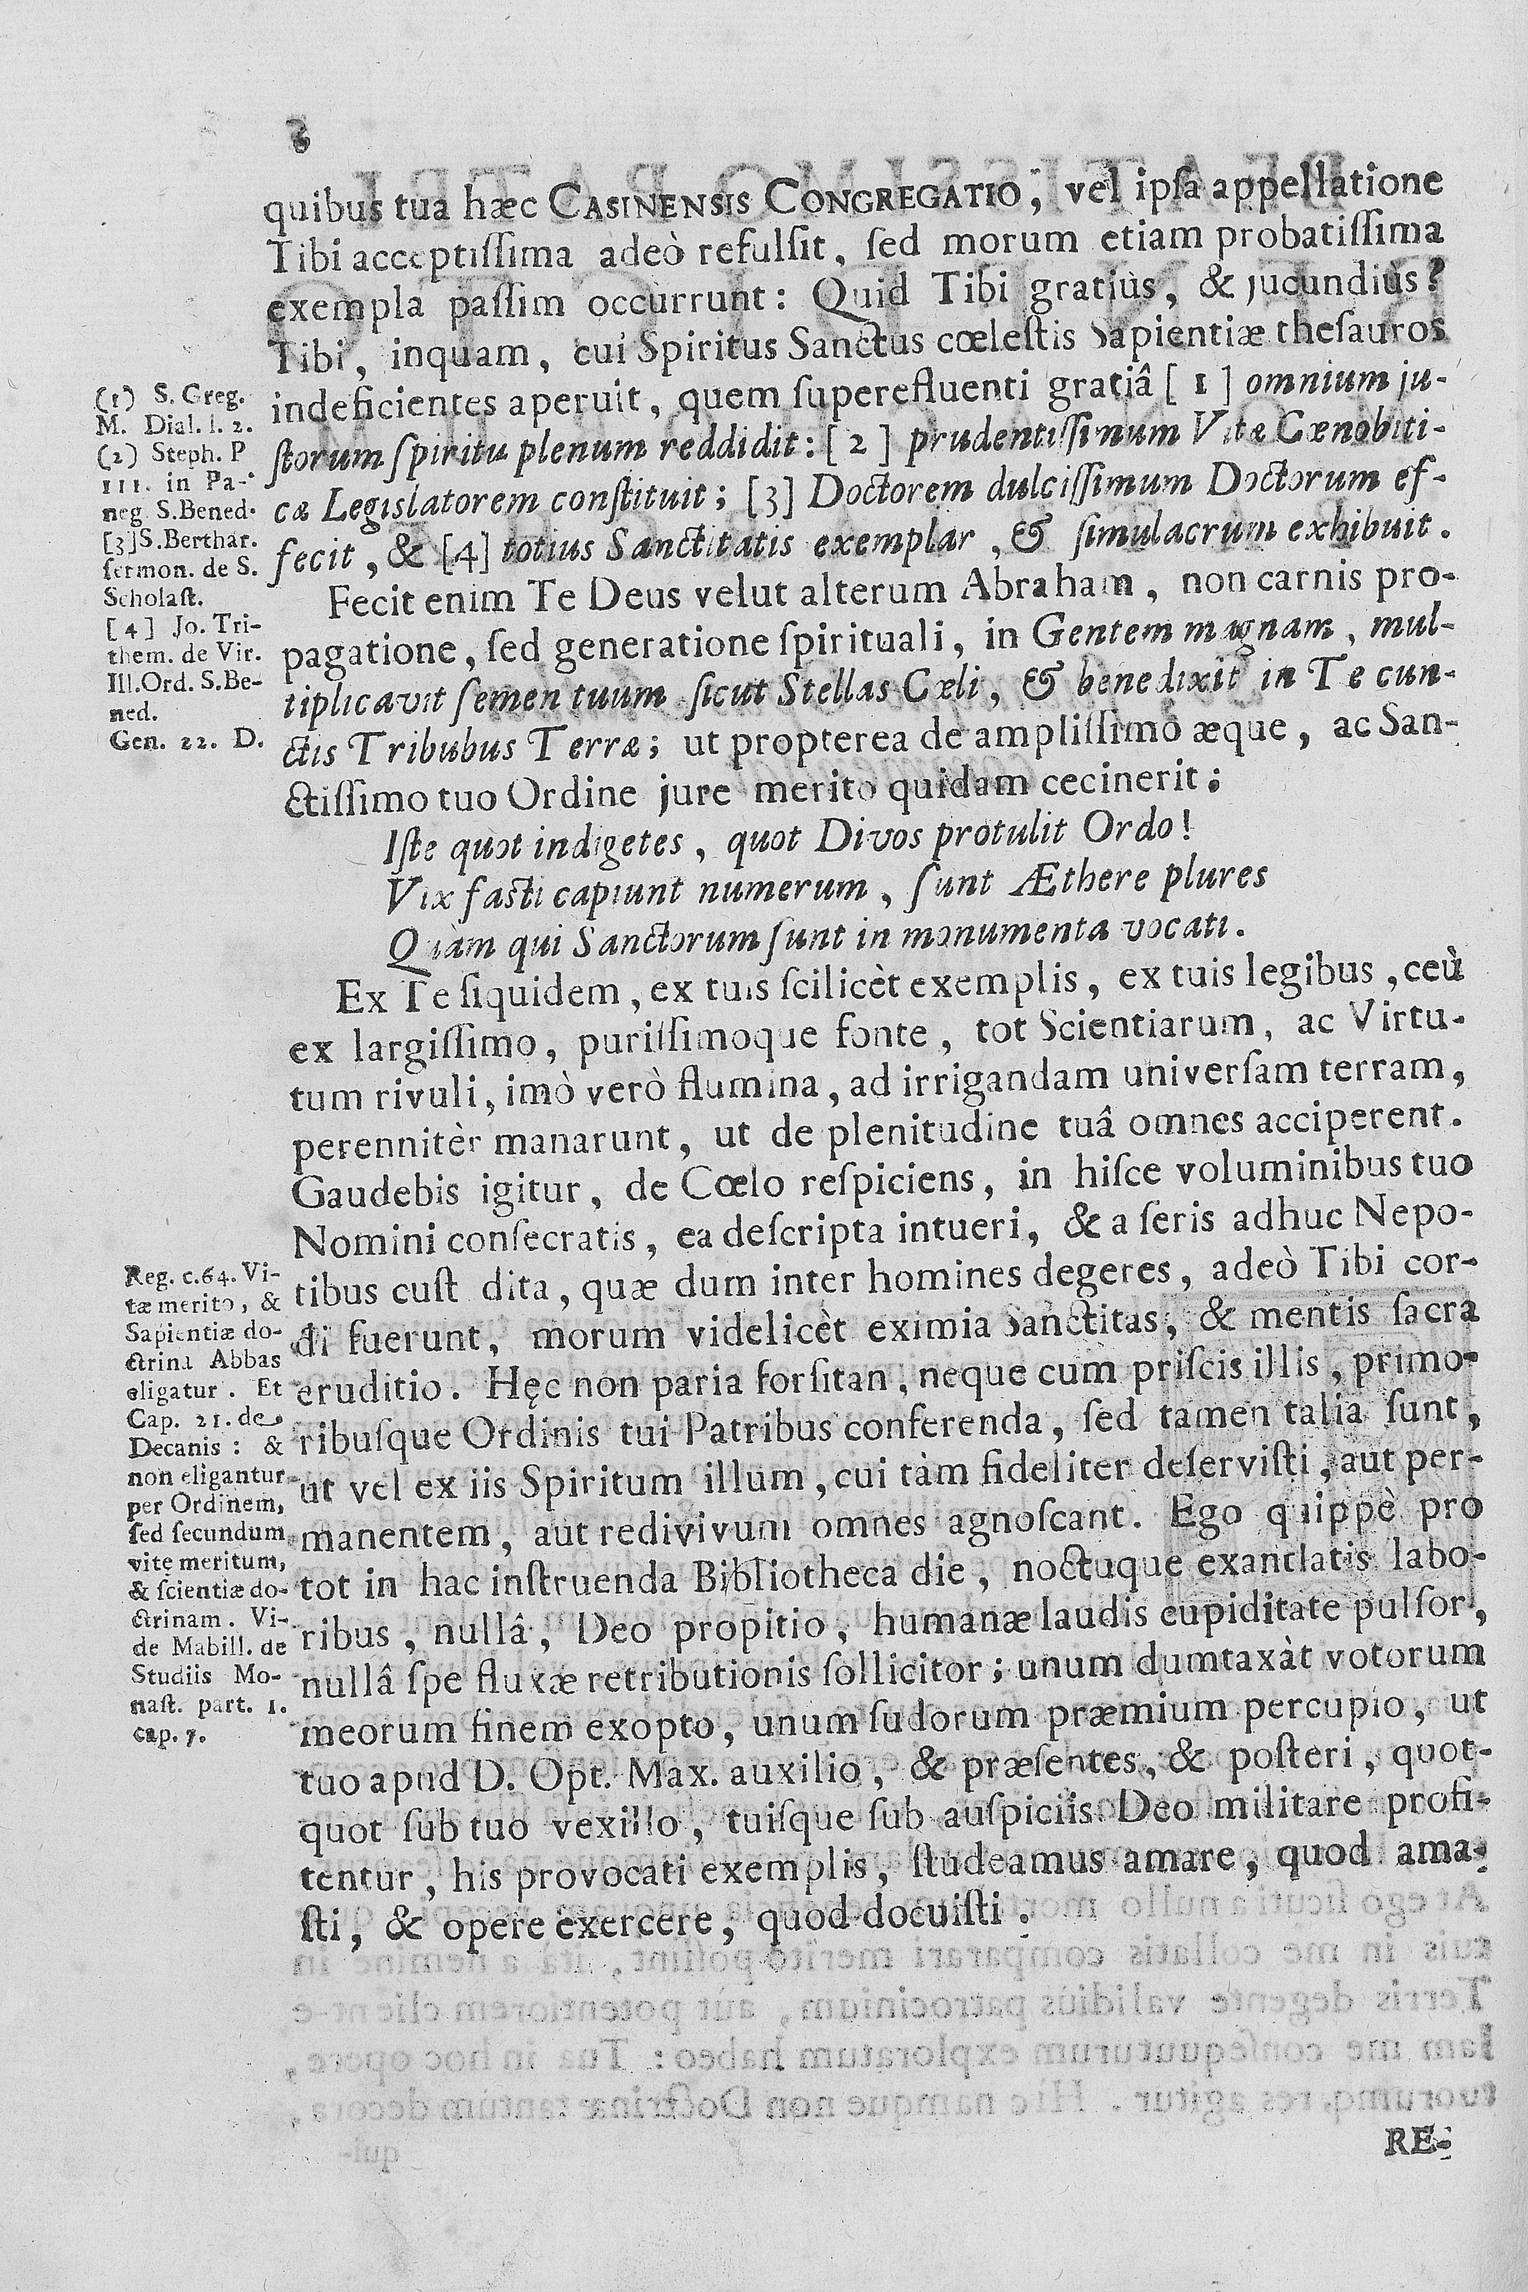 8
quibus tua hæc CASINENSIS CONGREGATIO, vel ipſa appellatione
Tibi acceptiſſima adeò refulſit, ſed morum etiam probatiſſima
exempla paſſim occurrunt: Quid Tibi gratiùs, & jucundiùs?
Tibi, inquam, cui Spiritus Sanctus cœleſtis Sapientiæ theſauros
indeficientes aperuit, quem ſuperefluenti gratiâ [1] omnium ju-
ſtorum ſpiritu plenum reddidit: [2] prudentiſſimum Vitæ Cœnobiti-
cæ Legislatorem conſtituit; [3] Doctorem dulciſſimum Doctorum ef-
fecit, & [4] totius Sanctitatis exemplar, & ſimulacrum exhibuit.
Fecit enim Te Deus velut alterum Abraham, non carnis pro-
pagatione, ſed generatione ſpirituali, in Gentem magnam, mul-
tiplicavit ſemen tuum ſicut Stellas Cœli, & benedixit in Te cun-
ctis Tribubus Terræ; ut propterea de ampliſſimo æque, ac San-
ctiſſimo tuo Ordine jure merito quidam cecinerit;
Iſte quot indigetes, quot Divos protulit Ordo!
Vix faſti capiunt numerum, ſunt Æthere plures
Quàm qui Sanctorum ſunt in monumenta vocati.
Ex Te ſiquidem, ex tuis ſcilicèt exemplis, ex tuis legibus, ceù
ex largiſſimo, puriſſimoque fonte, tot Scientiarum, ac Virtu-
tum rivuli, imò verò flumina, ad irrigandam univerſam terram,
perennitèr manarunt, ut de plenitudine tuâ omnes acciperent.
Gaudebis igitur, de Cœlo reſpiciens, in hiſce voluminibus tuo
Nomini conſecratis, ea deſcripta intueri, & a ſeris adhuc Nepo-
tibus cuſt dita, quæ dum inter homines degeres, adeò Tibi cor-
di fuerunt, morum videlicèt eximia Sanctitas, & mentis ſacra
eruditio. Hęc non paria forſitan, neque cum priſcis illis, primo-
ribuſque Ordinis tui Patribus conferenda, ſed tamen talia ſunt,
ut vel ex iis Spiritum illum, cui tàm fideliter deſerviſti, aut per-
manentem, aut redivivum omnes agnoſcant. Ego quippè pro
tot in hac inſtruenda Bibliotheca die, noctuque exantlatis labo-
ribus, nullâ, Deo propitio, humanæ laudis cupiditate pulſor,
nullâ ſpe fluxæ retributionis ſollicitor; unum dumtaxàt votorum
meorum finem exopto, unum ſudorum præmium percupio, ut
tuo apud D. Opt. Max. auxilio, & præſentes, & poſteri, quot-
quot ſub tuo vexillo, tuiſque ſub auſpiciis Deo militare profi-
tentur, his provocati exemplis, ſtudeamus amare, quod ama-
ſti, & opere exercere, quod docuiſti.
RE-
(1) S. Greg.
M. Dial. l. 2.
(2) Steph. P
III. in Pa-
neg. S.Bened.
[3]S.Berthar.
ſermon. de S.
Scholaſt.
[4] Jo. Tri-
them. de Vir.
Ill.Ord. S.Be-
ned.
Gen. 22. D.
Reg. c.64. Vi-
tæ merito, &
Sapientiæ do-
ctrina Abbas
eligatur. Et
Cap. 21. de
Decanis: &
non eligantur
per Ordinem,
ſed ſecundum
vitę meritum,
& ſcientiæ do-
ctrinam. Vi-
de Mabill. de
Studiis Mo-
naſt. part. 1.
cap. 7.